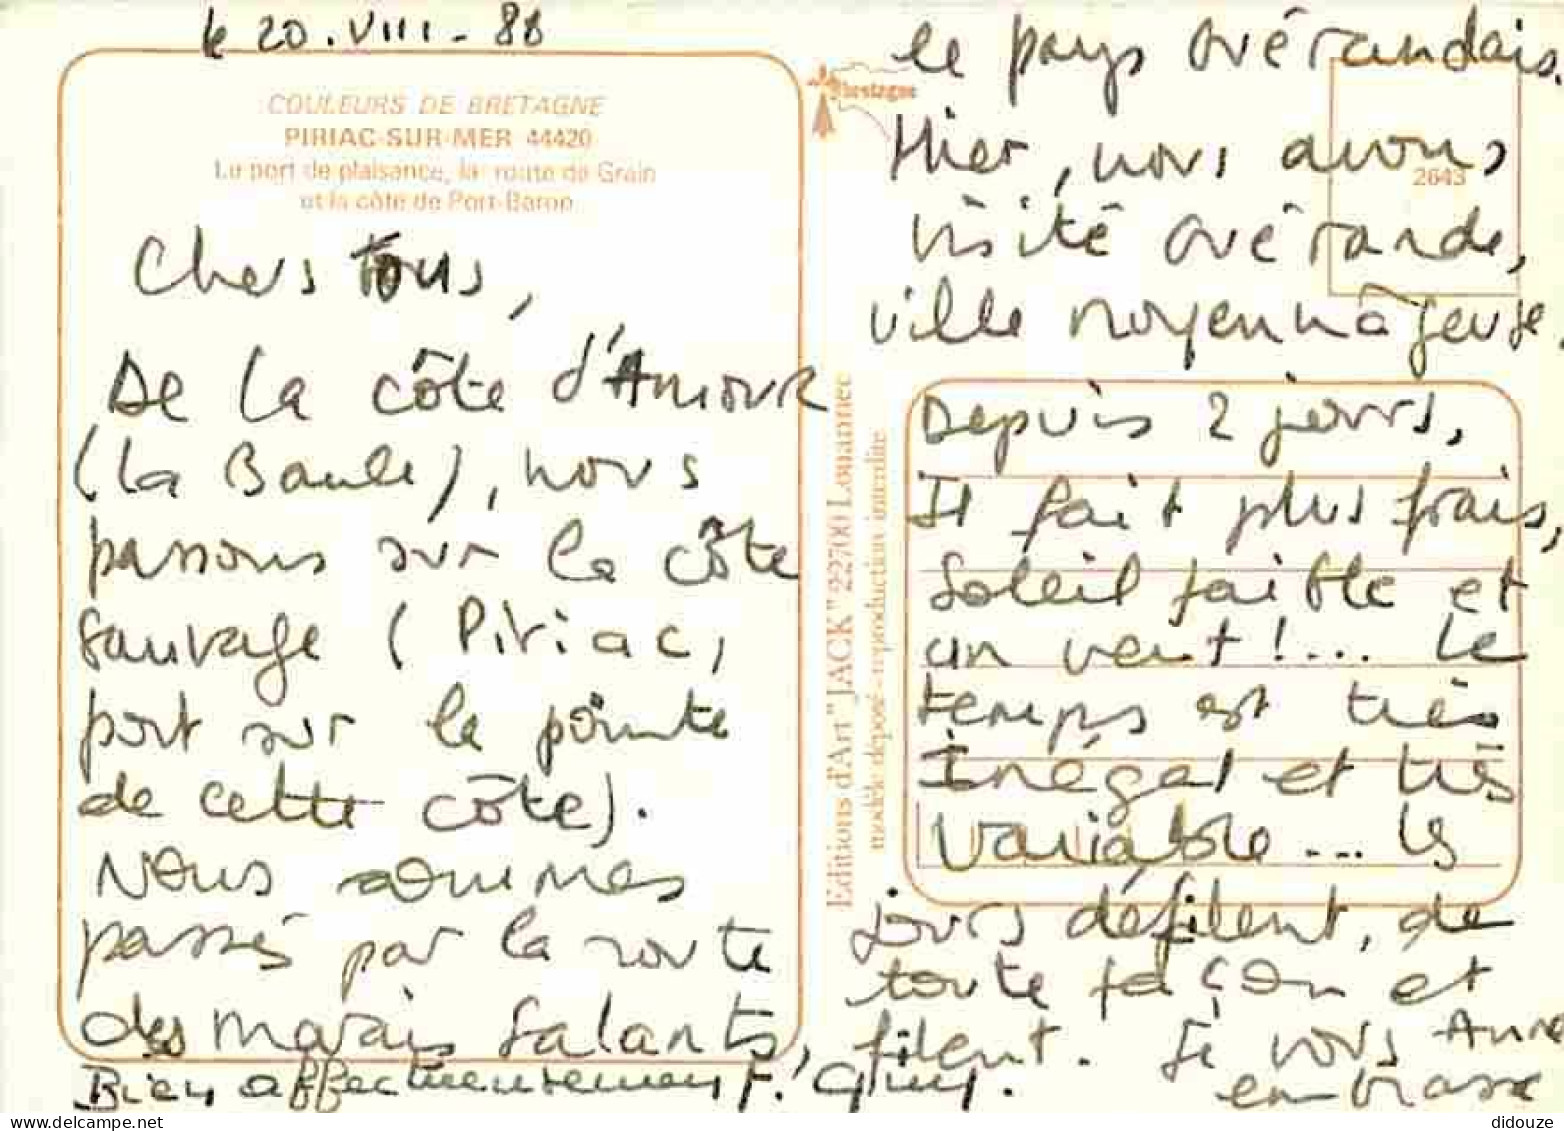 le 20.VIII - 86
COULEURS DE BRETAGNE
PIRIAC-SUR-MER 44420
Le port de plaisance, la route de Grain
et la côte de Port-Baron
Chers tous,
De la côte d'Amour
(la Baule), nous
passons sur la côte
sauvage (Piriac,
port sur la pointe
de cette côte).
Nous sommes
passés par la route
des marais salants,
Bien affectueusement. Guy.
Editions d'Art "JACK" 22700 Louannec
modèle déposé - reproduction interdite
2643
le pays Guérandais.
Hier, nous avons
visité Guérande,
ville moyennâgeuse.
Depuis 2 jours,
Il fait plus frais,
Soleil faible et
un vent !... Le
temps est très
Inégal et très
Variable... Les
jours défilent, de
toute façon et
filent. Je vous
embrasse
Anne
didouze